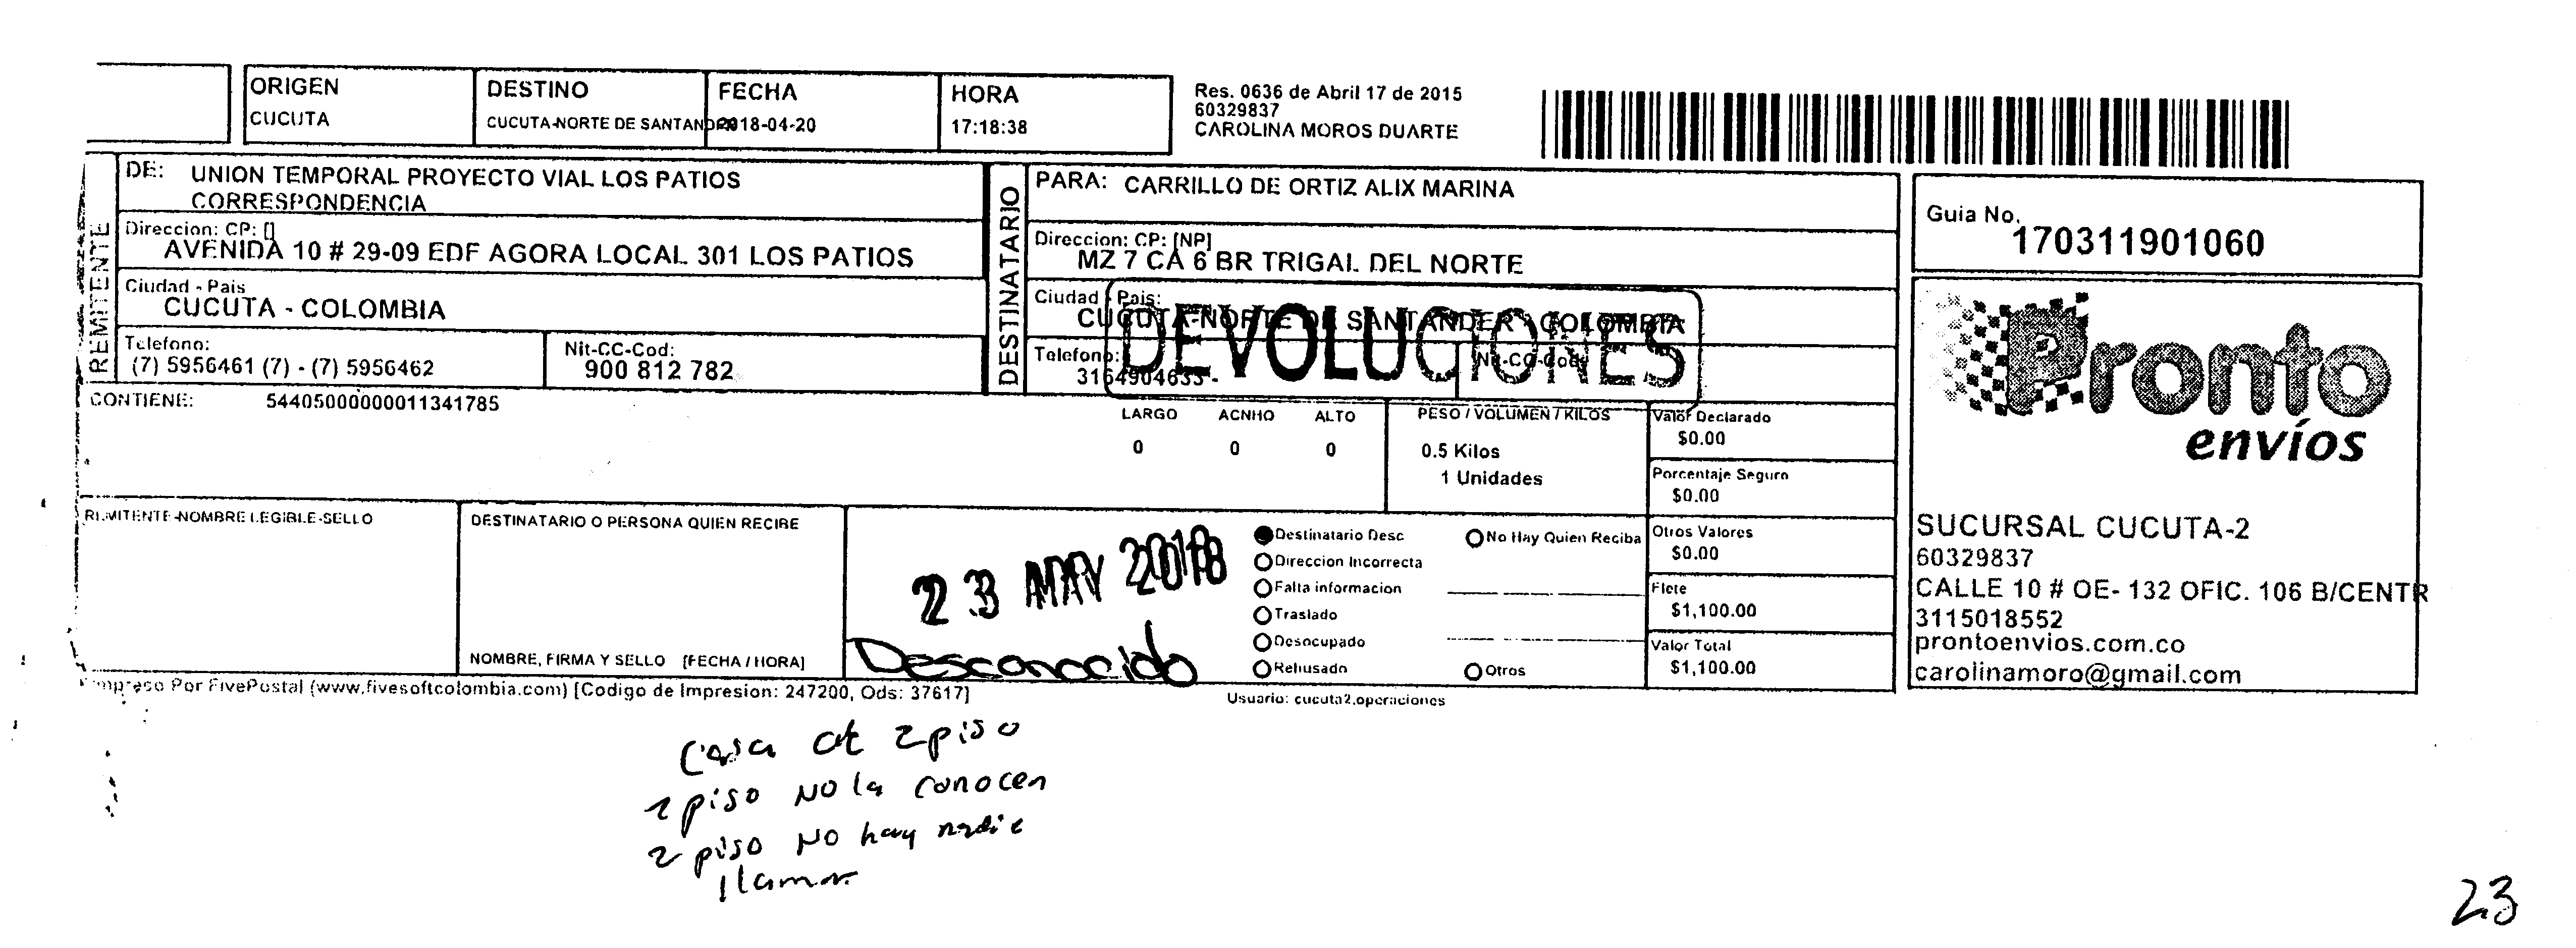 ORIGEN
CUCUTA
DESTINO
CUCUTA-NORTE DE SANTANDER
FECHA
2018-04-20
HORA
17:18:38
Res. 0636 de Abril 17 de 2015
60329837
CAROLINA MOROS DUARTE
REMITENTE
DE: UNION TEMPORAL PROYECTO VIAL LOS PATIOS
CORRESPONDENCIA
Direccion: CP: []
AVENIDA 10 # 29-09 EDF AGORA LOCAL 301 LOS PATIOS
Ciudad - Pais
CUCUTA - COLOMBIA
Telefono:
(7) 5956461 (7) - (7) 5956462
Nit-CC-Cod:
900 812 782
DESTINATARIO
PARA: CARRILLO DE ORTIZ ALIX MARINA
Direccion: CP: [NP]
MZ 7 CA 6 BR TRIGAL DEL NORTE
Ciudad - Pais:
CUCUTA-NORTE DE SANTANDER - COLOMBIA
DEVOLUCIONES
Telefono:
3164904633 -
Nit-CC-Cod:
Guia No.
170311901060
Pronto
envíos
CONTIENE: 54405000000011341785
LARGO ACNHO ALTO
0 0 0
PESO / VOLUMEN / KILOS
0.5 Kilos
1 Unidades
Valor Declarado
$0.00
Porcentaje Seguro
$0.00
Otros Valores
$0.00
Flete
$1,100.00
Valor Total
$1,100.00
REMITENTE-NOMBRE LEGIBLE-SELLO
DESTINATARIO O PERSONA QUIEN RECIBE
NOMBRE, FIRMA Y SELLO [FECHA / HORA]
23 MAY 2018
Desconocido
Destinatario Desc
Direccion Incorrecta
Falta informacion
Traslado
Desocupado
Rehusado
No Hay Quien Reciba
Otros
SUCURSAL CUCUTA-2
60329837
CALLE 10 # OE- 132 OFIC. 106 B/CENTR
3115018552
prontoenvios.com.co
carolinamoro@gmail.com
Impreso Por FivePostal (www.fivesoftcolombia.com) [Codigo de Impresion: 247200, Ods: 37617]
Usuario: cucuta2.operaciones
Casa de 2 piso
1 piso NO la conocen
2 piso NO hay nadie
llamar
23